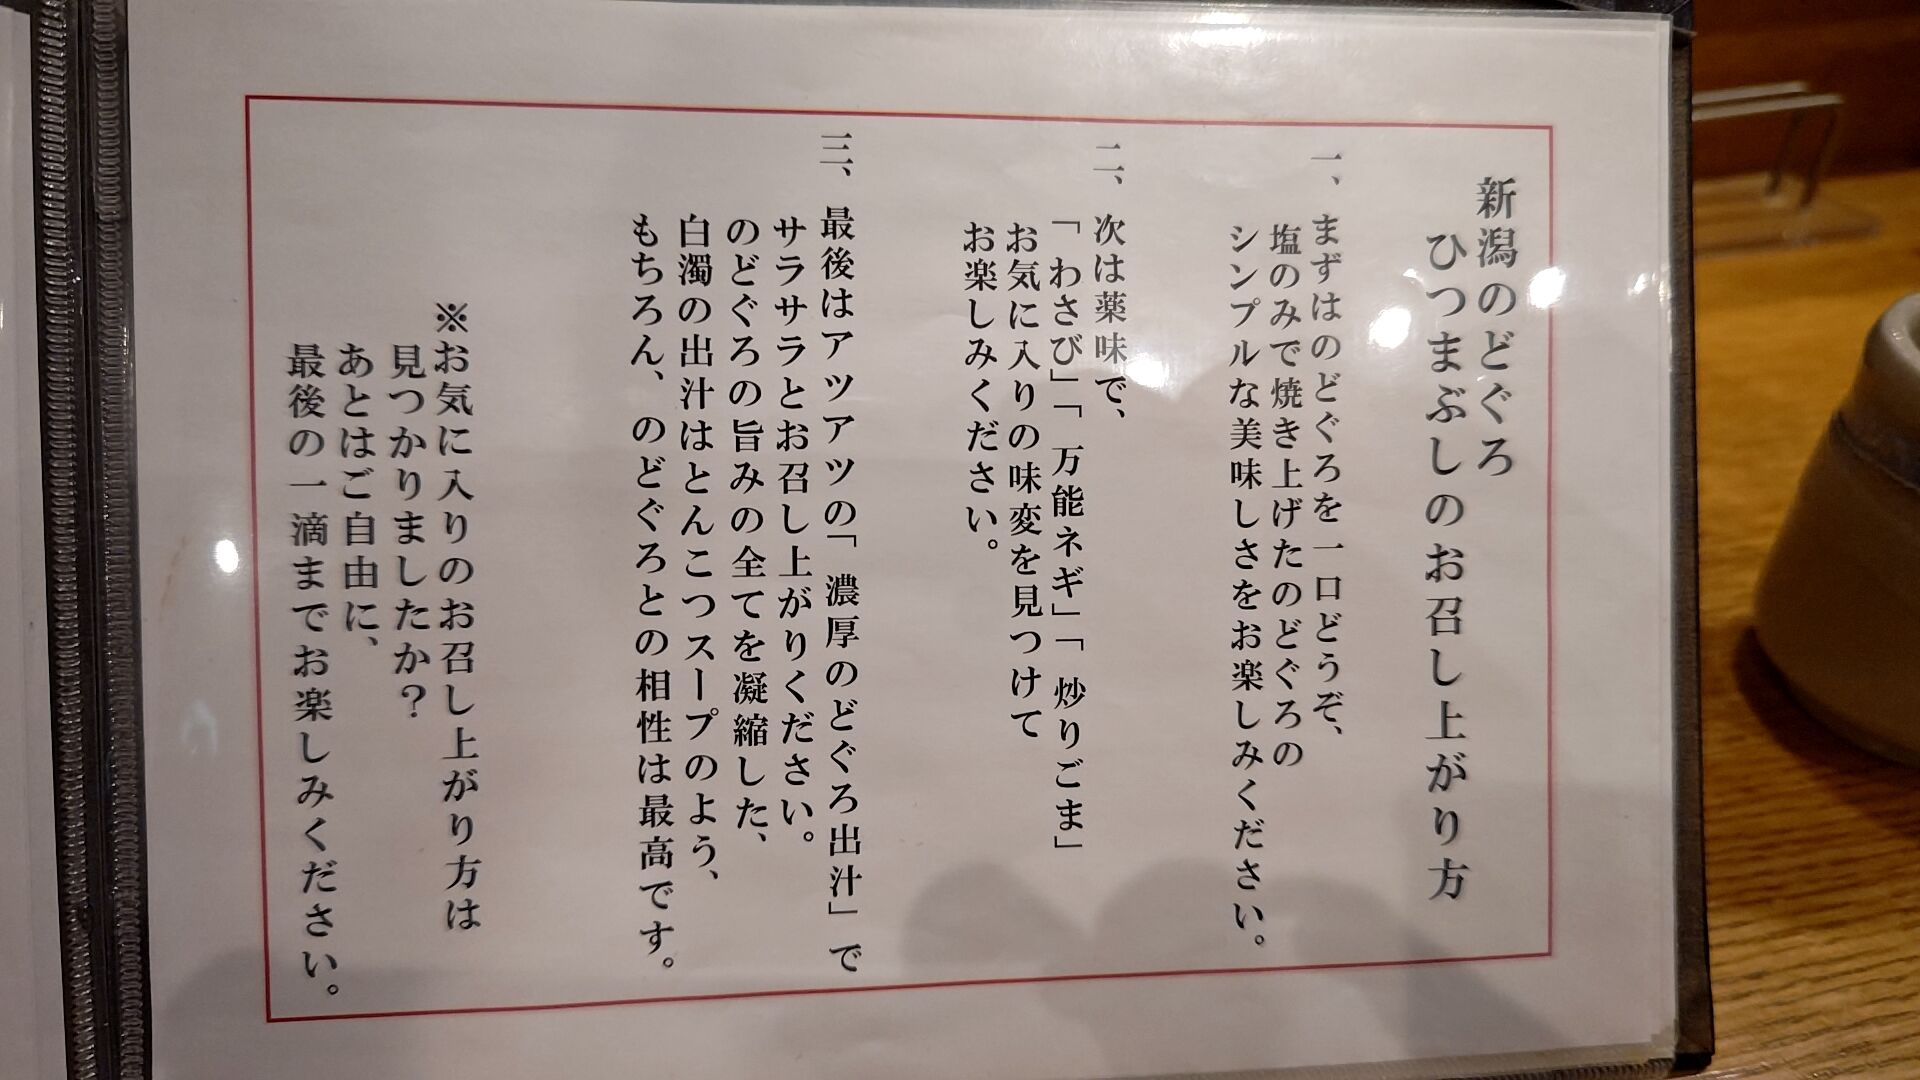 新潟のどぐろ
ひつまぶしのお召し上がり方
一、まずはのどぐろを一口どうぞ、
塩のみで焼き上げたのどぐろの
シンプルな美味しさをお楽しみください。
二、次は薬味で、
「わさび」「万能ネギ」「炒りごま」
お気に入りの味変を見つけて
お楽しみください。
三、最後はアツアツの「濃厚のどぐろ出汁」で
サラサラとお召し上がりください。
のどぐろの旨みの全てを凝縮した、
白濁の出汁はとんこつスープのよう、
もちろん、のどぐろとの相性は最高です。
※お気に入りのお召し上がり方は
見つかりましたか？
あとはご自由に、
最後の一滴までお楽しみください。